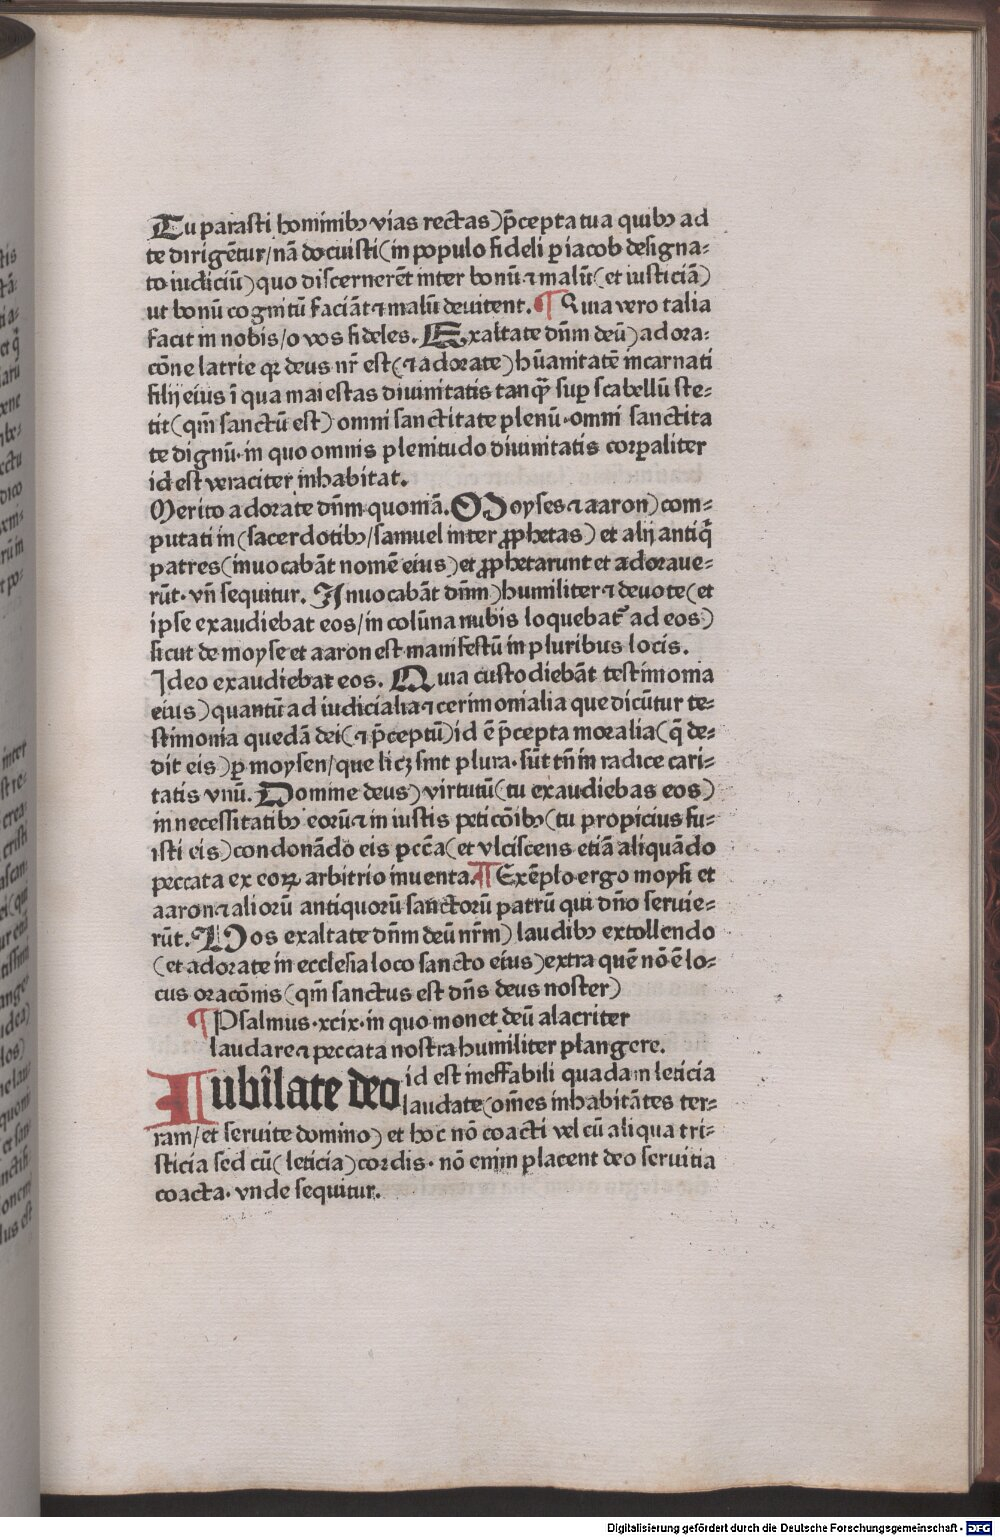 Tu parasti hominibꝫ vias rectas) p̄cepta tua quibꝫ ad
te dirigētur/nā docuisti(in populo fideli ꝑ iacob designa-
to iudiciū) quo discernerēt inter bonū ⁊ malū(et iusticiā)
ut bonū cognitū faciāt ⁊ malū deuitent. ¶ Quia vero talia
facit in nobis/o vos fideles. Exaltate dn̄m deū) adora-
cōne latrie qꝛ deus nr̄ est(⁊ adorate) hūanitatē incarnati
filij eius ī qua maiestas diuinitatis tanq̄ suꝑ scabellū ste-
tit(qm̄ sanctū est) omni sanctitate plenū·omni sanctita
te dignū·in quo omnis plenitudo diuinitatis corꝑaliter
id est veraciter inhabitat.
Merito adorate dn̄m quoniā. Moyses ⁊ aaron) com-
putati in(sacerdotibꝫ/samuel inter ꝓphetas) et alij antiq̄
patres(inuocabāt nomē eius) et ꝓphetarunt et adoraue-
rūt· vn̄ sequitur. Inuocabāt dn̄m) humiliter ⁊ deuote(et
ipse exaudiebat eos/in colūna nubis loquebat᷑ ad eos)
sicut de moyse et aaron est manifestū in pluribus locis.
Ideo exaudiebat eos. Quia custodiebāt testimonia
eius) quantū ad iudicialia ⁊ cerimonialia que dicūtur te-
stimonia quedā dei(⁊ p̄ceptū) id ē p̄cepta moralia(q̄ de-
dit eis) ꝑ moysen/que licꝫ sint plura· sūt tn̄ in radice cari-
tatis vnū. Domine deus) virtutū(tu exaudiebas eos)
in necessitatibꝫ eorū ⁊ in iustis peticōibꝫ(tu propicius fu-
isti eis) condonādo eis pccā(et vlciscens etiā aliquādo
peccata ex eoꝝ arbitrio inuenta. ¶ Exēplo ergo moysi et
aaron ⁊ aliorū antiquorū sanctorū patrū qui dn̄o seruie-
rūt. Uos exaltate dn̄m deū nr̄m) laudibꝫ extollendo
(et adorate in ecclesia loco sancto eius) extra quē nō ē lo-
cus oracōnis(qm̄ sanctus est dn̄s deus noster)
¶ Psalmus·xcix·in quo monet deū alacriter
laudare ⁊ peccata nostra humiliter plangere.
Iubilate deo id est ineffabili quadam leticia
laudate(om̄es inhabitātes ter-
ram/et seruite domino) et hoc nō coacti vel cū aliqua tri-
sticia sed cū(leticia) cordis· nō enim placent deo seruitia
coacta· vnde sequitur.
Digitalisierung gefördert durch die Deutsche Forschungsgemeinschaft - DFG